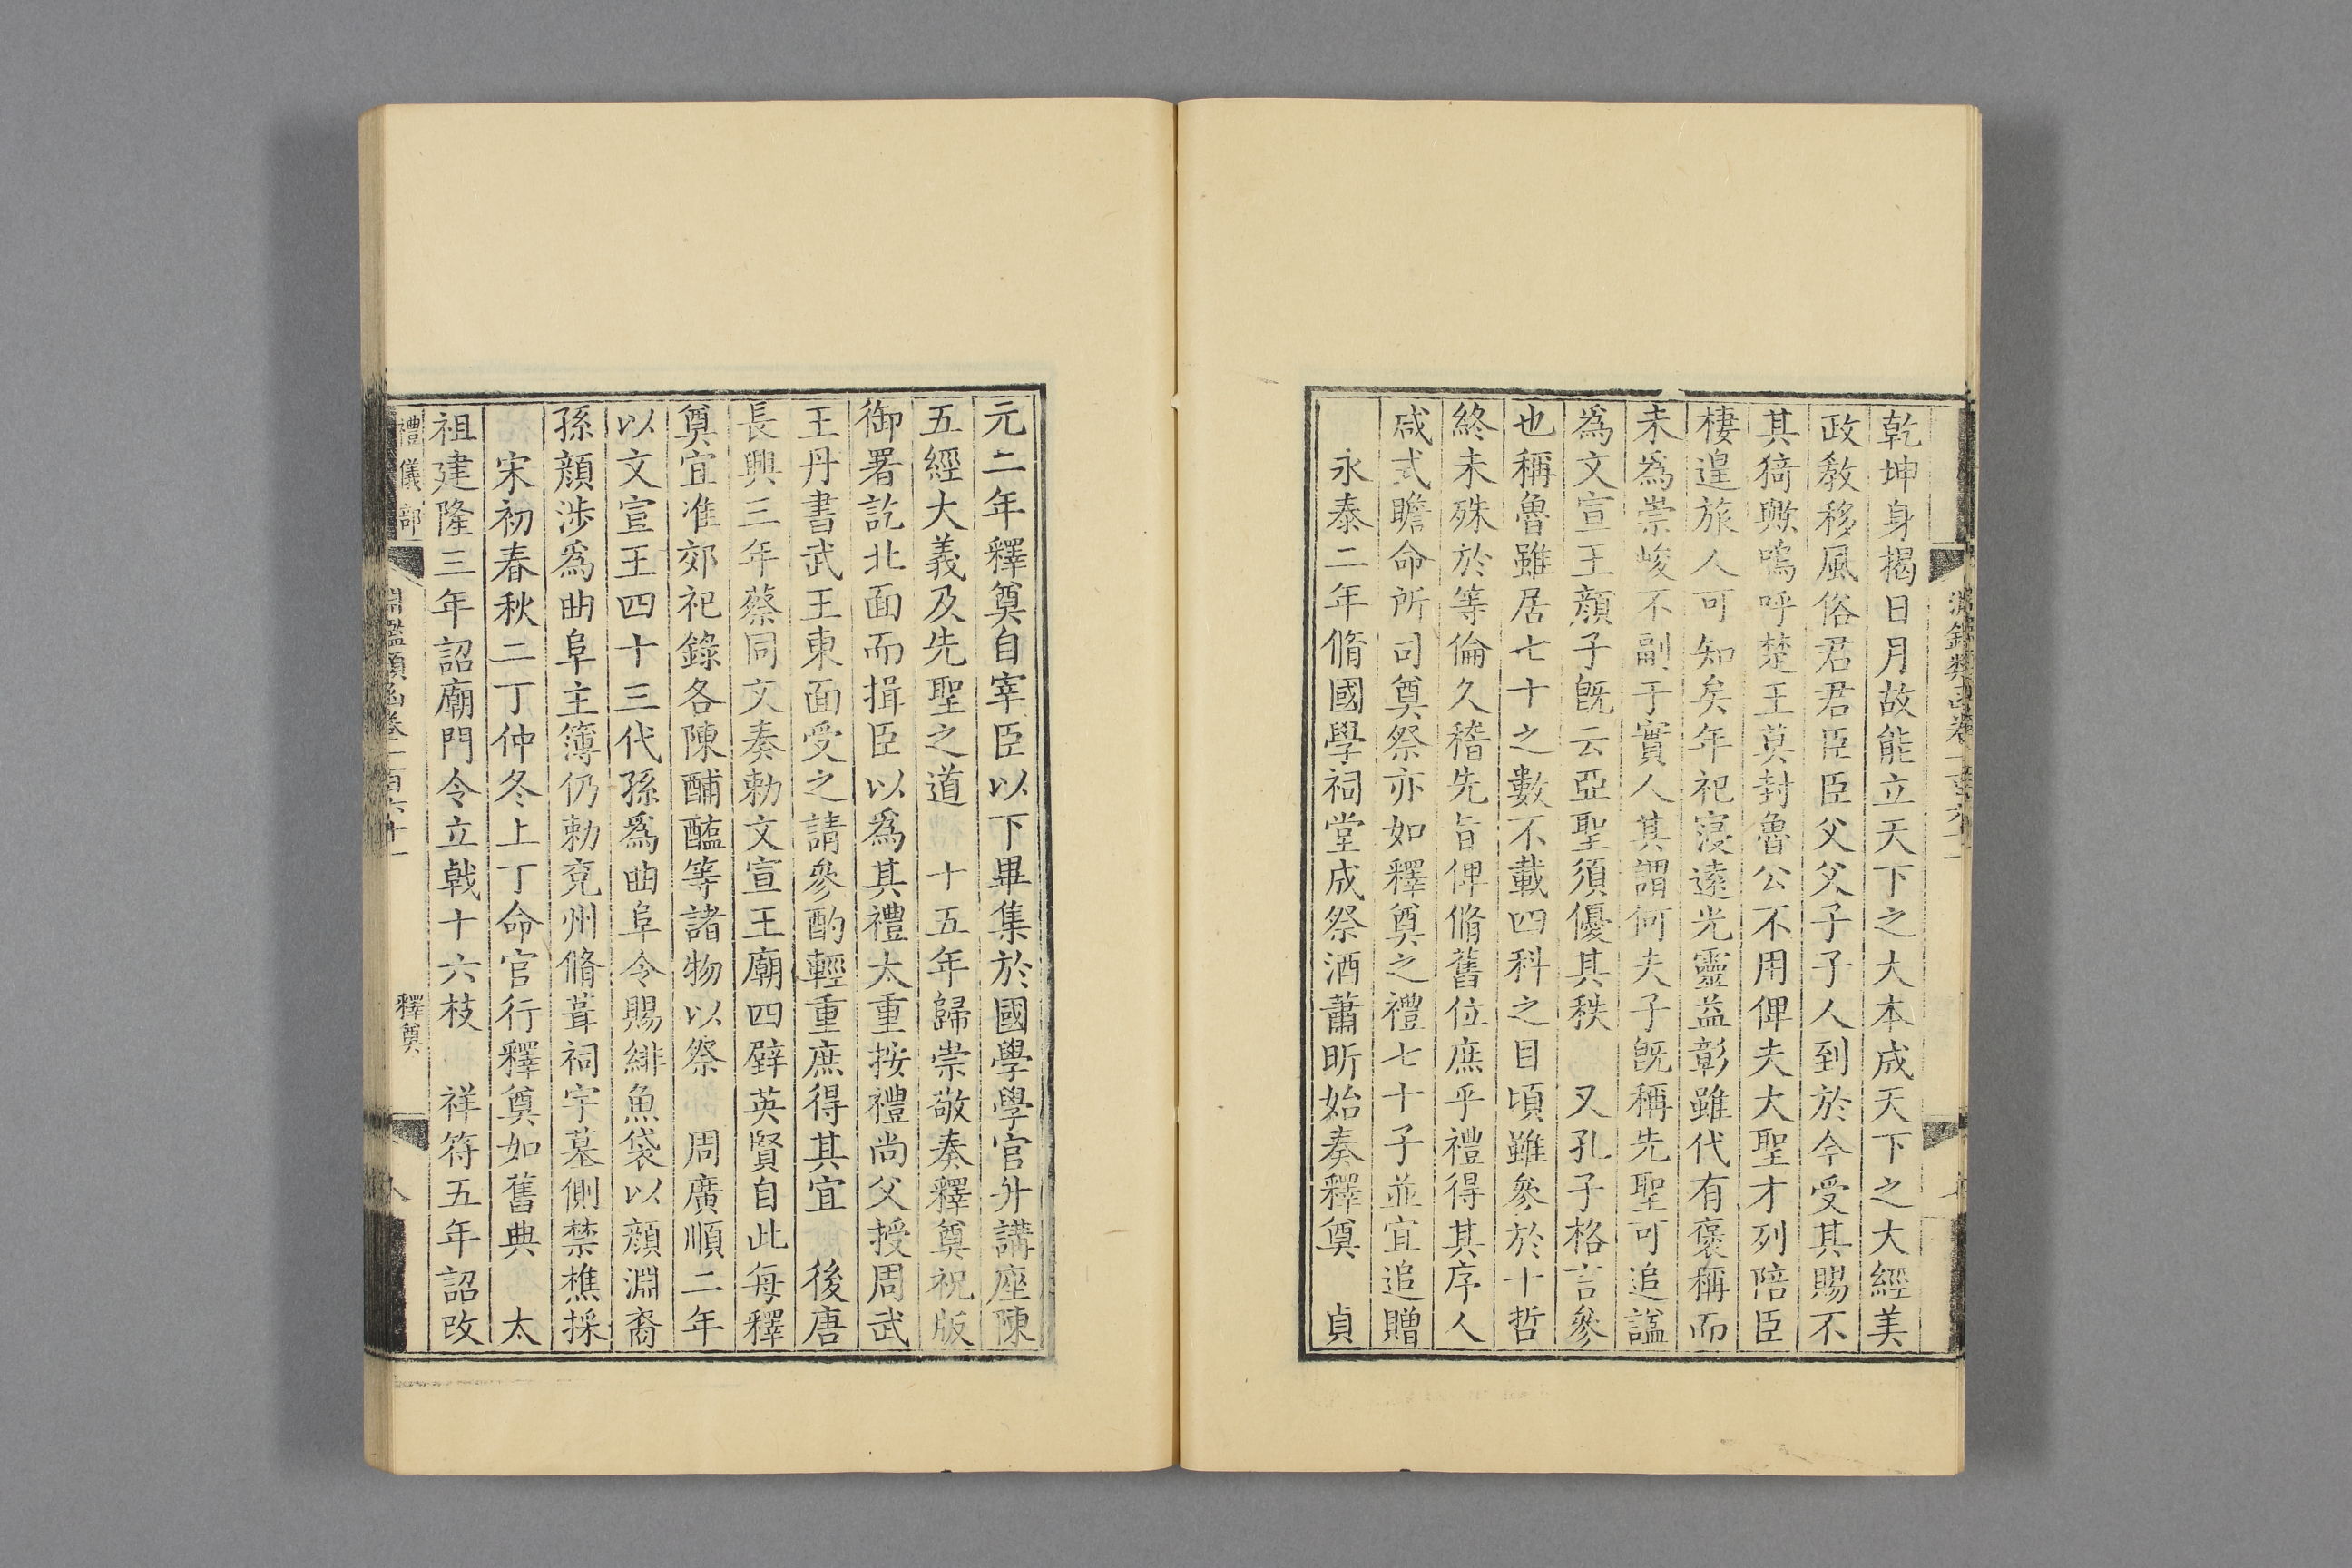 乾坤身揭日月故能立天下之大本成天下之大經美
政教移風俗君君臣臣父父子子人到於今受其賜不
其猗歟嗚呼楚王莫封魯公不用俾夫大聖才列陪臣
棲遑旅人可知矣年祀寖遠光靈益彰雖代有褒稱而
未爲崇峻不副于實人其謂何夫子旣稱先聖可追謚
爲文宣王顔子旣云亞聖須優其秩 又孔子格言參
也稱魯雖居七十之數不載四科之目頃雖參於十哲
終未殊於等倫久稽先旨俾脩舊位庶乎禮得其序人
咸式瞻命所司奠祭亦如釋奠之禮七十子並宜追贈
永泰二年脩國學祠堂成祭酒蕭昕始奏釋奠 貞
元二年釋奠自宰臣以下畢集於國學學官升講座陳
五經大義及先聖之道 十五年歸崇敬奏釋奠祝版
御署訖北面而揖臣以爲其禮太重按禮尚父授周武
王丹書武王東面受之請參酌輕重庶得其宜 後唐
長興三年蔡同文奏勅文宣王廟四壁英賢自此每釋
奠宜准郊祀錄各陳酺醢等諸物以祭 周廣順二年
以文宣王四十三代孫爲曲阜令賜緋魚袋以顔淵裔
孫顔涉爲曲阜主簿仍勅兖州脩葺祠宇墓側禁樵採
宋初春秋二丁仲冬上丁命官行釋奠如舊典 太
祖建隆三年詔廟門令立戟十六枝 祥符五年詔改
禮儀部 淵鑑類函卷一百六十一 釋奠 八